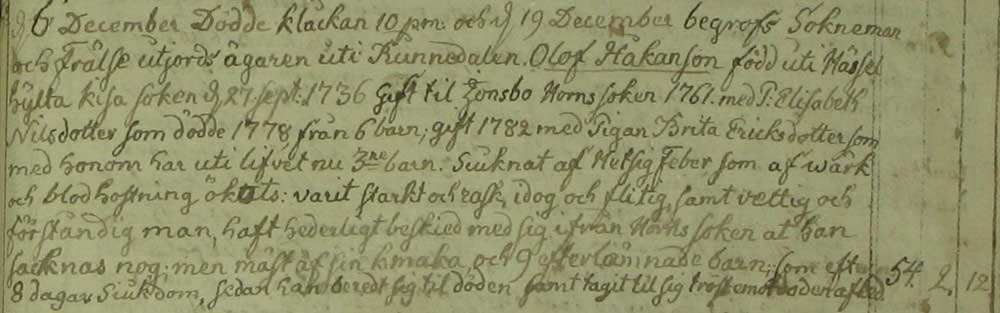 d 6 December Dödde klåckan 10 pm. och d 19 December begrofs Sokneman
och Frälse utjords ägaren uti Runnedalen. Olof Håkanson född uti Hässel
hylta kisa soken d 27. sept. 1736 gift til Zonsbo Horns soken 1761. med P: Elisabeth
Nilsdotter som dödde 1778 från 6 barn; gift 1782 med Pigan Brita Ericksdotter som
med honom har uti lifvet nu 3ne barn. Siuknat af Hetsig Feber, som af wärk
och blodhostning öktats: varit starkt och rask, idog och flitig, samt vettig och
förståndig man, haft hederligt beskied med sig ifrån Horns soken at han
sacknas nog; men mäst af sin k. maka och 9 efterlämnade barn; som efter
8 dagars Siukdom, sedan han beredt sig til döden samt tagit til sig tröst emot döden afled. 54. 2. 12